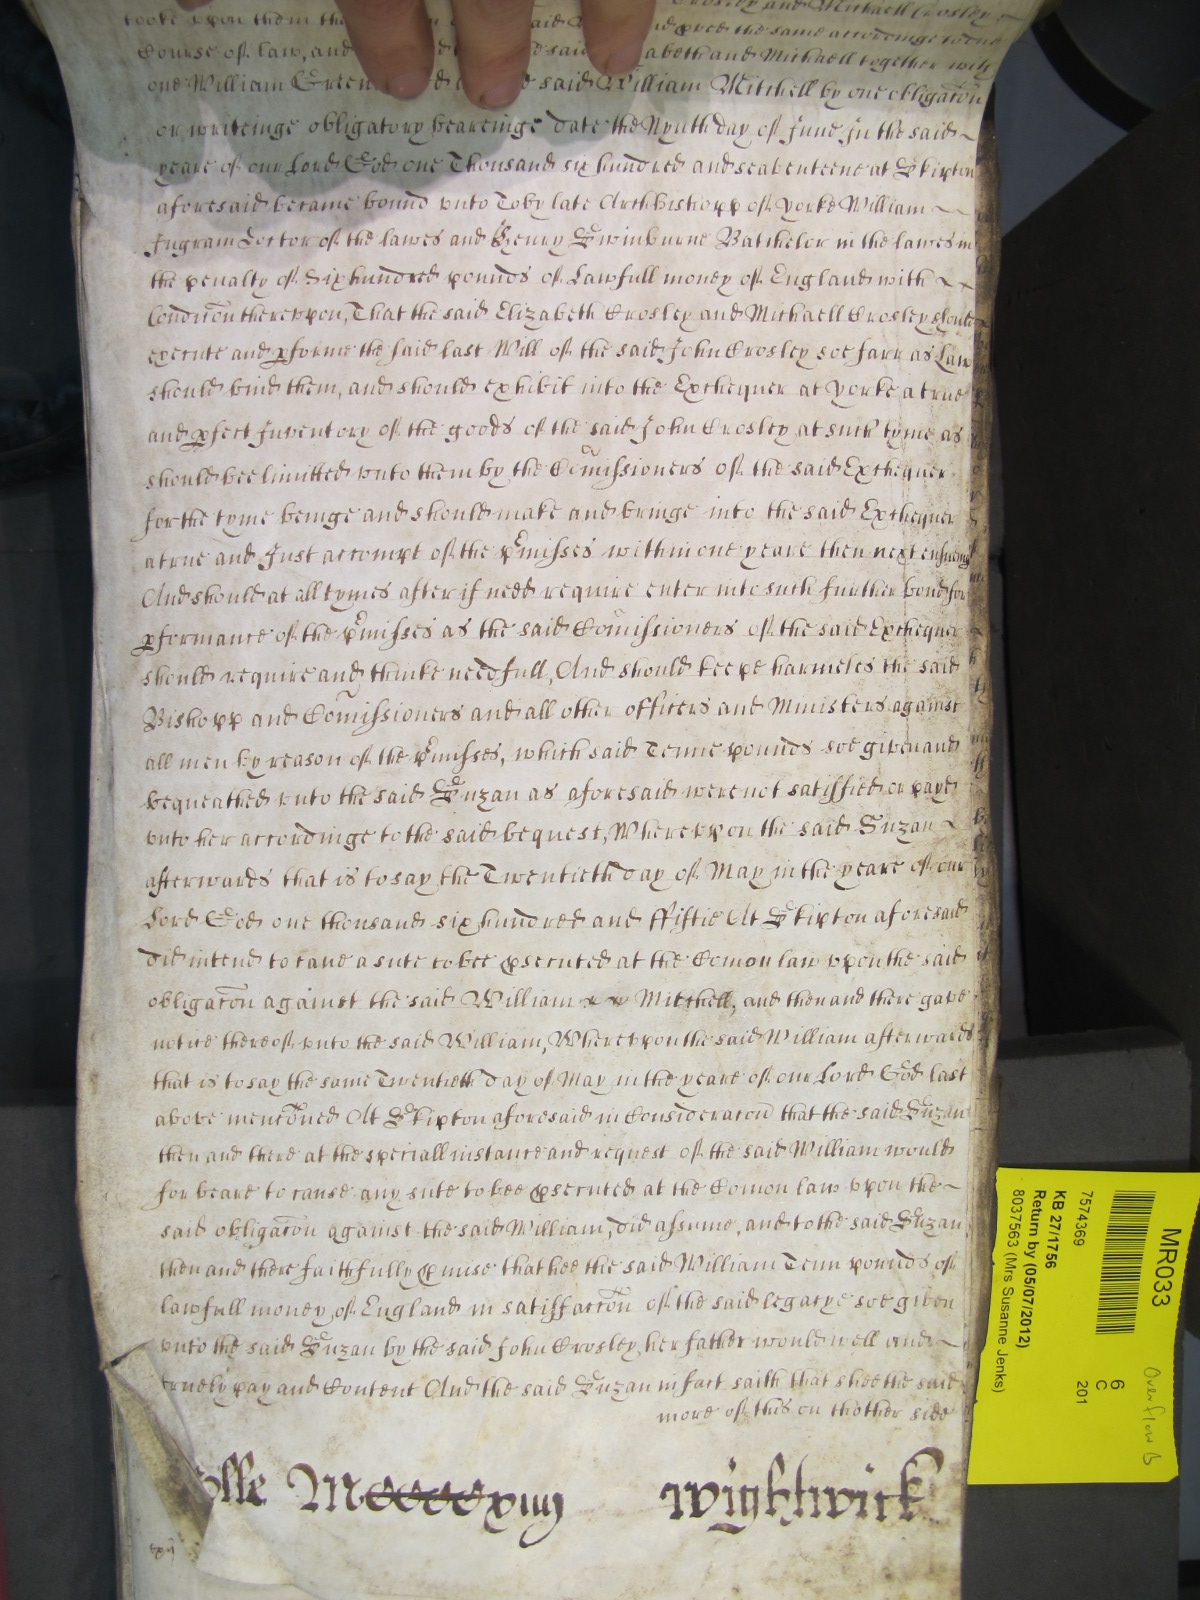 Crosley and Michaell Crosley
tooke upon them the said and pved the same accordinge to due
Course of law, and said abeth and Michaell together with
one William said William Mitchell by one obligacon
or writeinge obligatory beareinge date the Nynth day of June in the said
yeare of our Lord God one Thousand six hundred and seaventeene at Skipton
aforesaid became bound unto Toby late Archbishopp of Yorke William
Ingram Doctor of the lawes and Henry Swinburne Batchelor in the lawes in
the penalty of Six hundred pounds of Lawfull money of England with
Condicon thereupon, That the said Elizabeth Crosley and Michaell Crosley should
execute and pforme the said last Will of the said John Crosley soe farr as Law
should bind them, and should exhibit into the Exchequer at Yorke a true
and pfect Inventory of the goods of the said John Crosley at such tyme as
should bee limitted unto them by the Comissioners of the said Exchequer
for the tyme beinge and should make and bringe into the said Exchequer
a true and Just accompt of the pmisses within one yeare then next ensueing
And should at all tymes after if need require enter into such further bond for
pformance of the pmisses as the said Comissioners of the said Exchequer
should require and thinke needfull, And should keepe harmeles the said
Bishopp and Comissioners and all other officers and Ministers against
all men by reason of the pmisses, which said Tenne pounds soe given and
bequeathed unto the said Suzan as aforesaid were not satisffied or payd
unto her accordinge to the said bequest, Whereupon the said Suzan
afterwards that is to say the Twentieth day of May in the yeare of our
Lord God one thousand six hundred and ffiftie At Skipton aforesaid
did intend to cause a sute to bee psecuted at the Comon law upon the said
obligacon against the said William Mitchell, and then and there gave
notice thereof unto the said William, Whereupon the said William afterwards
that is to say the same Twentieth day of May in the yeare of our Lord God last
above mencõned At Skipton aforesaid in Consideracon that the said Suzan
then and there at the speciall instance and request of the said William would
forbeare to cause any sute to bee psecuted at the Comon law upon the
said obligacon against the said William, did assume, and to the said Suzan
then and there faithfully pmise that hee the said William Tenn pounds of
lawfull money of England in satisfaccon of the said legacye soe given
unto the said Suzan by the said John Crosley her father would well and
truely pay and Content And the said Suzan in fact saith that shee the said
more of this on thother side
Wightwick
MR033
7574369
KB 27/1756
Return by (05/07/2012)
8037563 (Mrs Susanne Jenks)
6
C
201
Overflow B